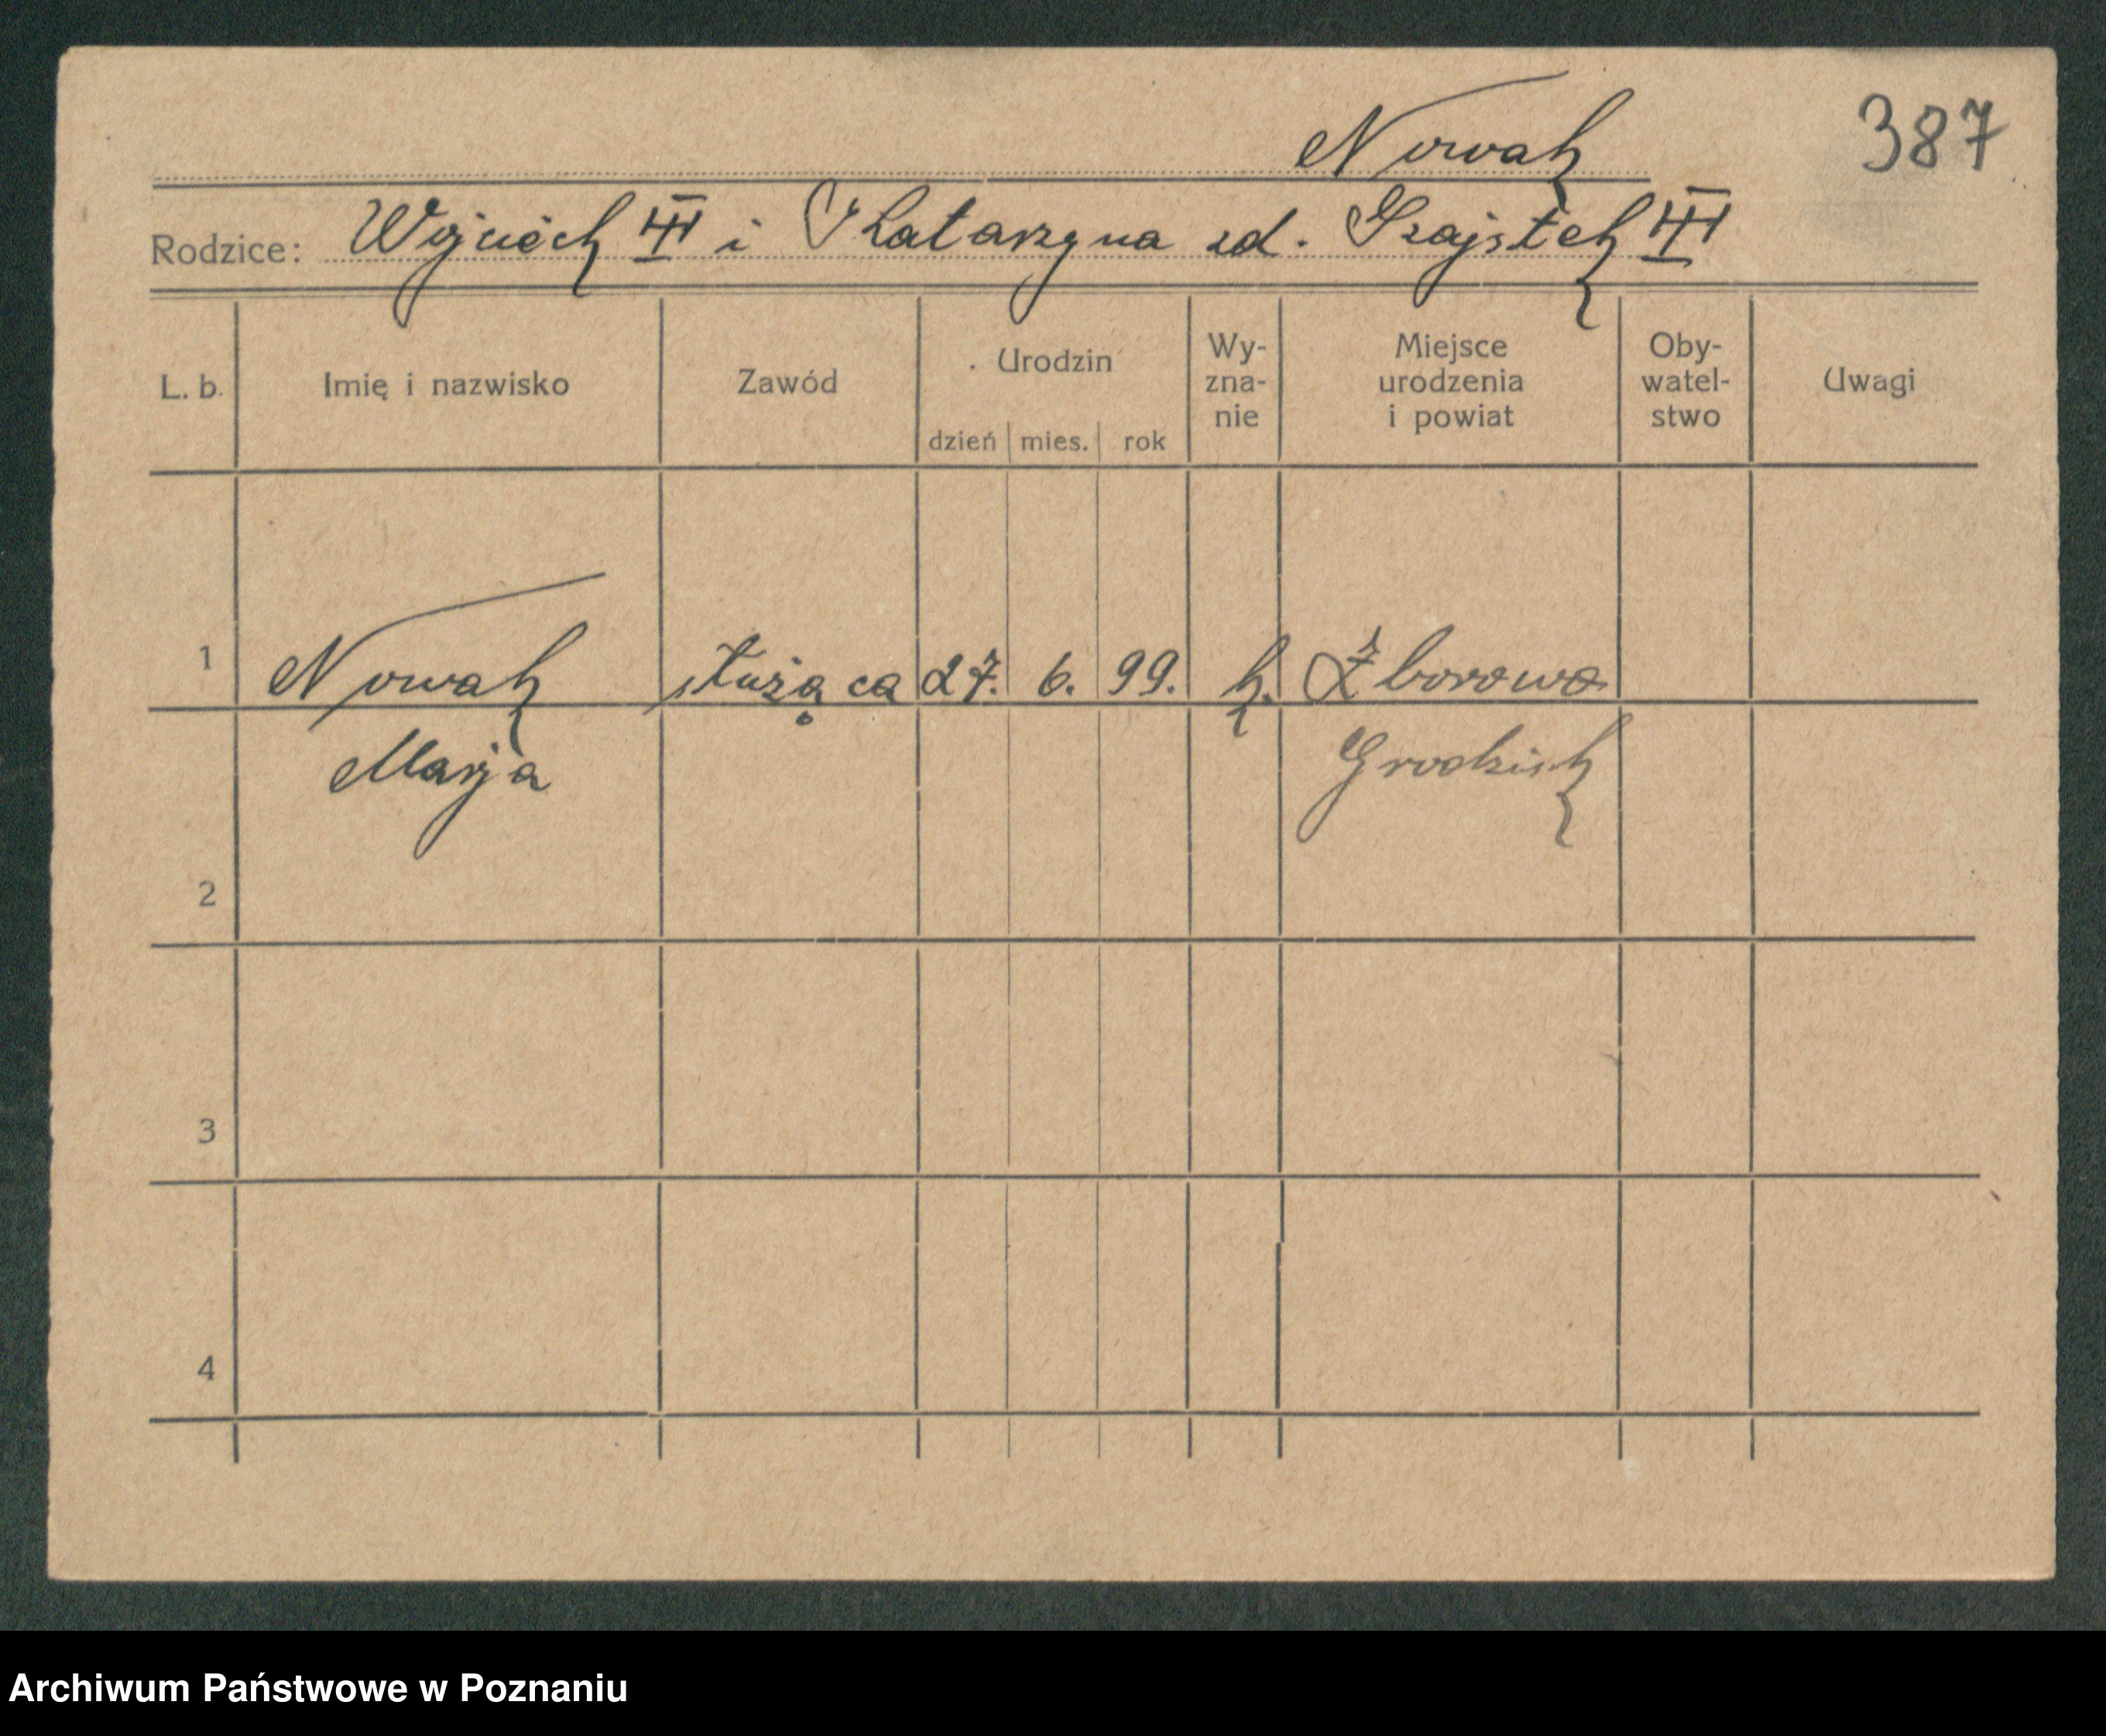 Nowak 387
Rodzice: Wojciech i Katarzyna zd.
L. b. Imię i nazwisko Zawód Urodzin dzień mies. rok Wy-zna-nie Miejsce urodzenia i powiat Oby-watel-stwo Uwagi
1 Nowak służąca 27. 6. 99. k. Zborowo
Marja Grodzisk
2
3
4
Archiwum Państwowe w Poznaniu